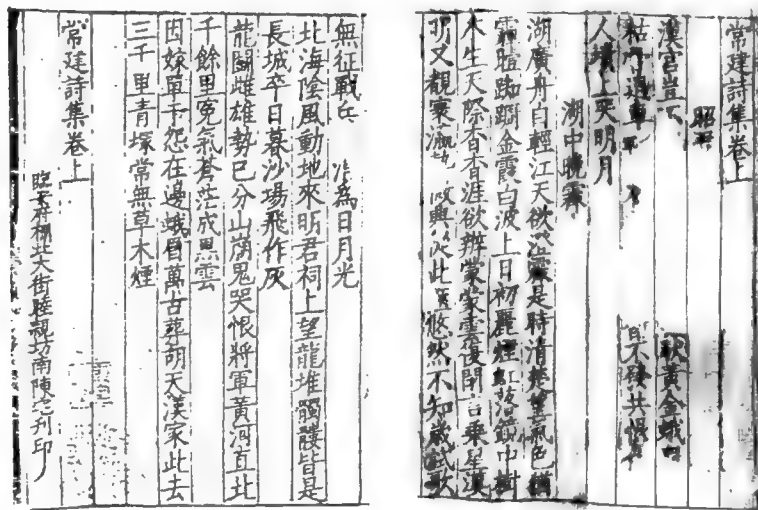 常建詩集卷上
昭
漢宮豈不 馱黃金蛾
枯 車 不發共恨
人墳上哭明月
湖中晚霽
湖廣舟自輕江天欲澄霽是時清楚望氣色猶
霾曀踟躕金霞白波上日初麗煙虹落鏡中樹
木生天際杳杳涯欲辨蒙蒙雲復閉言乘星漢
明又覩寰瀛 興從此 悠然不知歲試歌
無征戰兵 為日月光
北海陰風動地來明君祠上望龍堆髑髏皆是
長城卒日暮沙場飛作灰
龍鬬雌雄勢已分山崩鬼哭恨將軍黃河直北
千餘里冤氣蒼茫成黑雲
因嫁單于怨在邊蛾眉萬古葬胡天漢家此去
三千里青塚常無草木煙
常建詩集卷上
臨安府棚北大街睦親坊南陳宅刊印